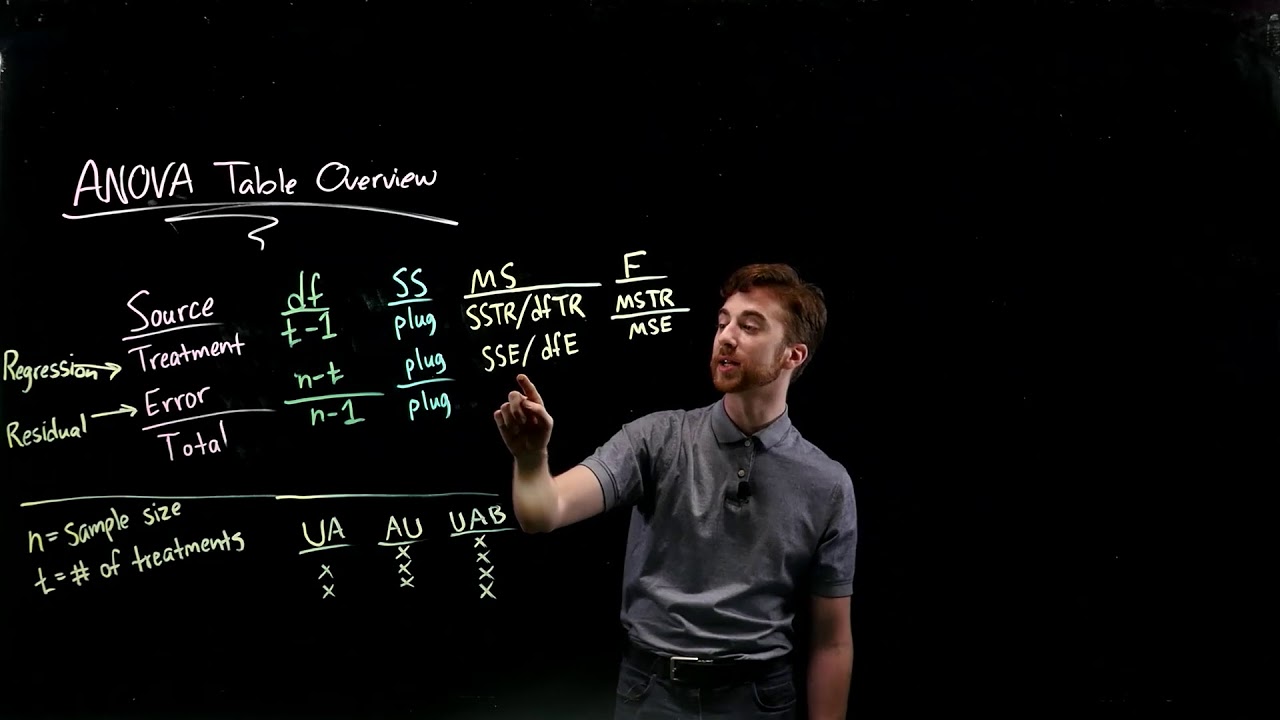 ANOVA Table Overview
Source df SS MS F
Treatment t-1 plug SSTR/dfTR MSTR/MSE
Regression → Error n-t plug SSE/dfE
Residual → Total n-1 plug
n = sample size
t = # of treatments
UA AU UAB
x x
x x x
x x x
x